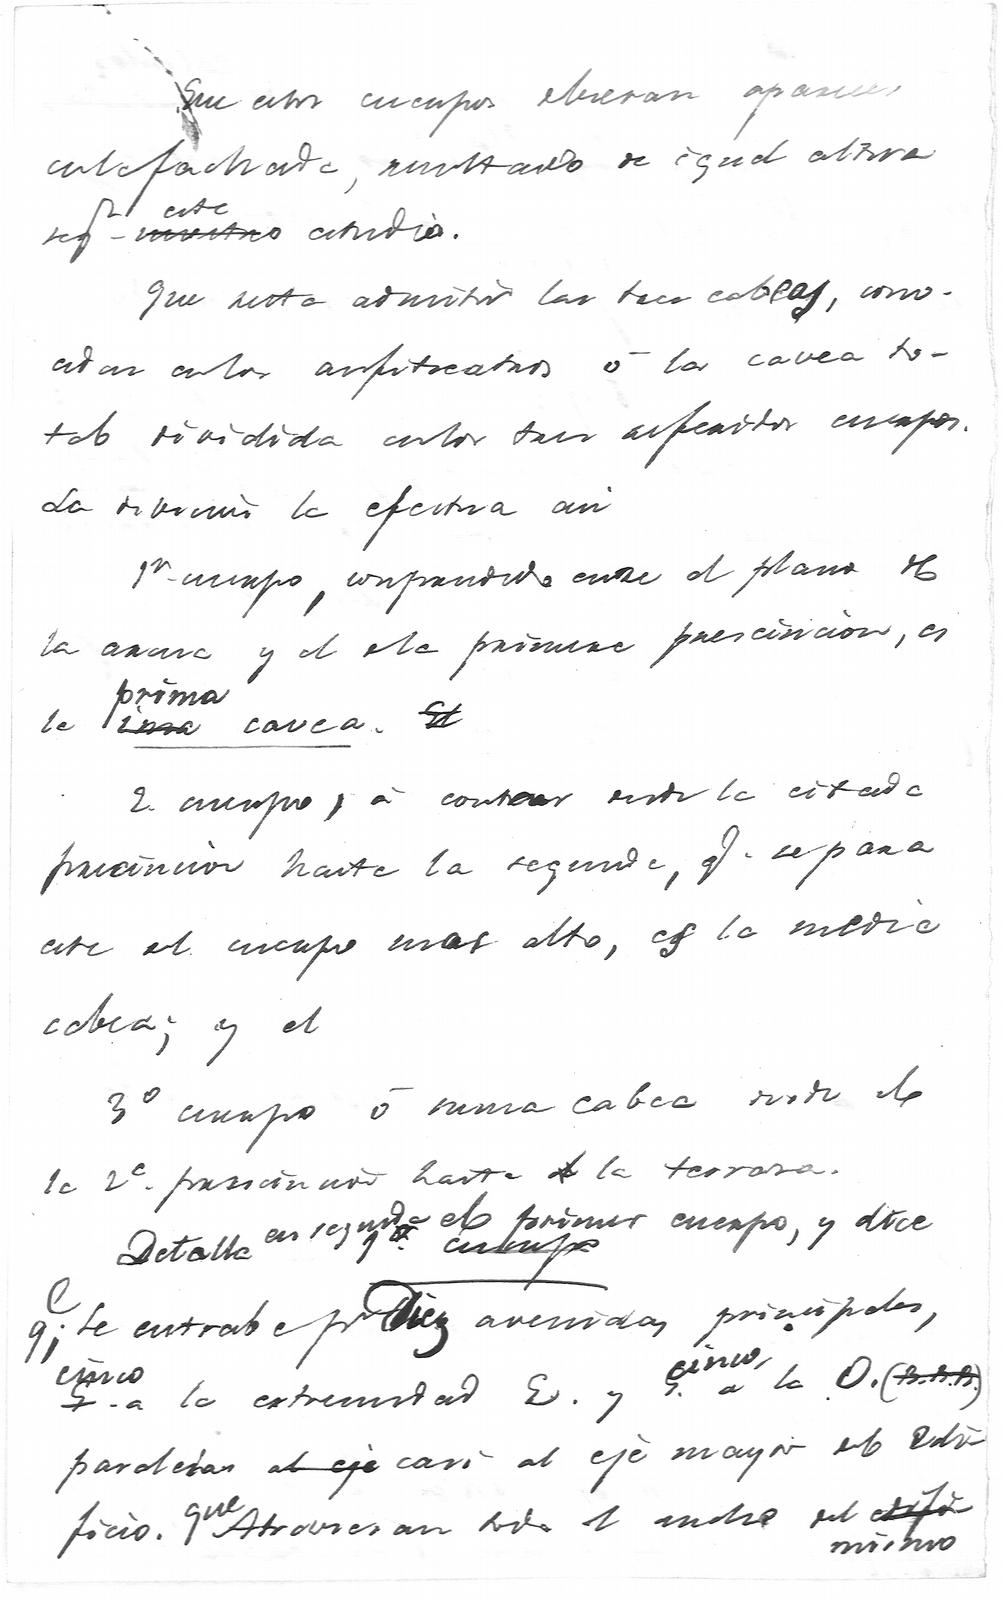 Que estos cuerpos debieran aparecer
en la fachada, resultado de igual altura
seg^n este nuestro estudio.
Que resta admitir las tres cabeas, cono-
cidas en los anfiteatros ó la cavea to-
tal dividida en los tres referidos cuerpos.
La division la efectua asi
1^er cuerpo, comprendido entre el plano de
la arena y el de la primera prescincion, es
la prima ima cavea. El
2. cuerpo, á contar desde la citada
precincion hasta la segunda, q. separa
este del cuerpo mas alto, es la media
cabea; y el
3º cuerpo ó suma cabea desde
la 2ª prescincion hasta la terraza.
Detalla en seguida el primer cuerpo, y dice
q; Se entraba p^r Diez avenidas principales,
cinco 5 a la extremidad E. y cinco, 5. a la O. (B.B.B.)
paralelas al eje casi al eje mayor del edi
ficio. que Atraviesan todo el ancho del edifi
mismo